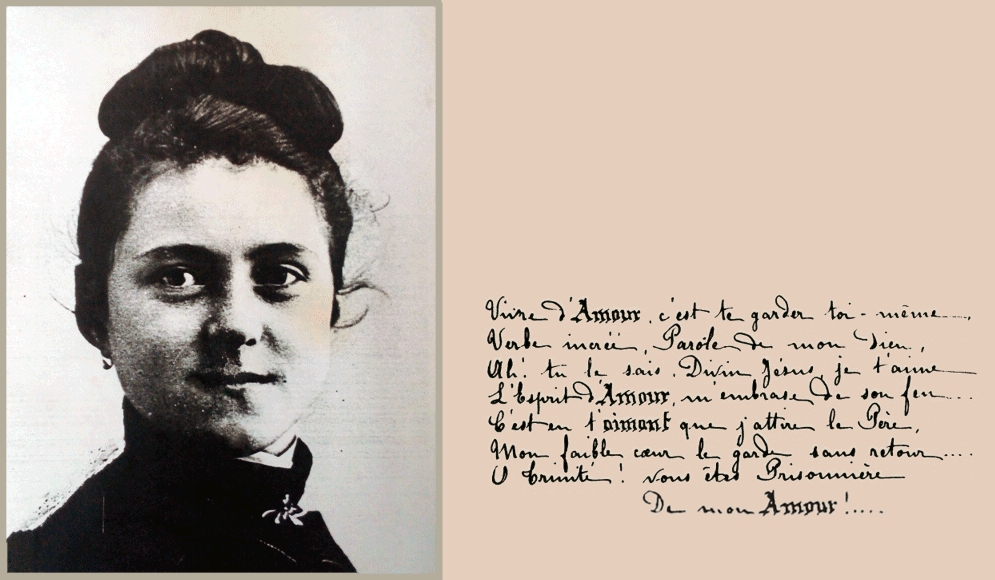 Vivre d'Amour, c'est te garder toi-même....
Verbe increé, Parole de mon Dieu,
Ah! tu le sais, Divin Jésus, je t'aime
L'Esprit d'Amour, m'embrase de son feu....
C'est en t'aimant que j'attire le Père,
Mon faible cœur le garde sans retour....
O Trinité! vous êtes Prisonnière
De mon Amour!....